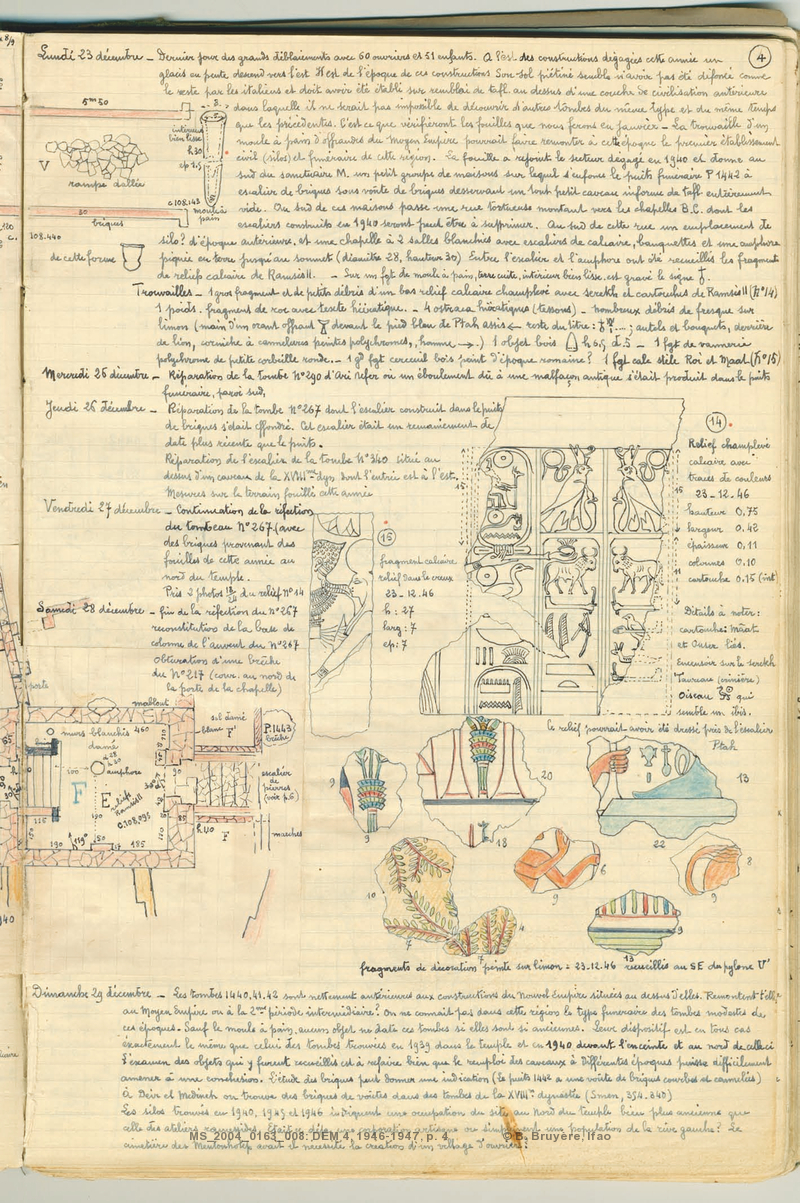 4
Lundi 23 décembre – Dernier jour des grands déblaiements avec 60 ouvriers et 51 enfants. A l'Est des constructions dégagées cette année un
glacis en pente descend vers l'est. Il est de l'époque de ces constructions. Son sol piétiné semble n'avoir pas été défoncé comme
le reste par les italiens et doit avoir été établi sur remblai de tafl au dessus d'une couche de civilisation antérieure
dans laquelle il ne serait pas impossible de découvrir d'autres tombes du même type et du même temps
que les précédentes. C'est ce que vérifieront les fouilles que nous ferons en janvier – La trouvaille d'un
moule à pain d'offrandes du Moyen Empire pourrait faire remonter à cette époque le premier établissement
civil (silos) et funéraire de cette région. La fouille a rejoint le secteur dégagé en 1940 et donne au
sud du sanctuaire M. un petit groupe de maisons sur lequel s'enfonce le puits funéraire P 1442 à
escalier de briques sous voûte de briques desservant un tout petit caveau informe de tafl entièrement
vide. Au sud de ces maisons passe une rue tortueuse montant vers les chapelles B.C. dont les
escaliers construits en 1940 seront peut être à supprimer. Au sud de cette rue un emplacement de
silo? d'époque antérieure, et une chapelle à 2 salles blanchies avec escaliers de calcaire, banquettes et une amphore
piquée en terre jusqu'au sommet (diamètre 28, hauteur 30) Entre l'escalier et l'amphore ont été recueillis les fragments
de reliefs calcaire de Ramsès II. – Sur un fgt de moule à pain, terre cuite, intérieur bien lisse, est gravé le signe
Trouvailles – 1 gros fragment et de petits débris d'un bas relief calcaire champlevé avec serekh et cartouches de Ramsès II (N°14)
1 poids. fragment de roc avec texte hiératique. – 4 ostraca hiératiques (tessons) – nombreux débris de fresque sur
limon (main d'un orant offrant devant le pied bleu de Ptah assis ← reste du titre: ; autels et bouquets, derrière
de lion, corniche à cannelures peintes polychromes, homme →.) 1 objet bois h 6,5 d. 5 – 1 fgt de vannerie
polychrome de petite corbeille ronde. – 1 gd fgt cercueil bois peint d'époque romaine? 1 fgt calc. stèle Roi et Maat (N°15)
Mercredi 25 décembre – Réparation de la tombe N°290 d'Ari Nefer où un éboulement dû à une malfaçon antique s'était produit dans le puits
funéraire, paroi sud,
Jeudi 26 décembre – Réparation de la tombe N°267 dont l'escalier construit dans le puits
de briques s'était effondré. Cet escalier était un remaniement de
date plus récente que le puits.
Réparation de l'escalier de la tombe N°340 situé au
dessus d'un caveau de la XVIIIème dyn. dont l'entrée est à l'est.
Mesures sur le terrain fouillé cette année
Vendredi 27 décembre – Continuation de la réfection
du tombeau N°267 (avec
des briques provenant des
fouilles de cette année au
nord du temple.
Pris 2 photos du relief N°14
Samedi 28 décembre – fin de la réfection du N°267
reconstitution de la base de
colonne de l'auvent du N°267
Obturation d'une brèche
du N°217 (cour. au nord de
la porte de la chapelle)
14
Relief champlevé
calcaire avec
traces de couleurs
23-12-46
hauteur 0,75
largeur 0.42
épaisseur 0,11
colonnes 0.10
cartouche 0.15 (int)
Détails à noter:
cartouche: Maat
et Ouser liés.
Encensoir sur le serekh
Taureau (crinière)
Oiseau qui
semble un ibis.
15
fragment calcaire
relief dans le creux
23-12.46
h: 27
larg: 7
ep: 7
Ce relief pourrait avoir été dressé près de l'escalier
5m50
V
rampe dallée
30
briques
intérieur
bien lisse
h 30
ep 2.5
C 108.143
moule à
pain
108.440
de cette forme
porte
mallouf
murs blanchis 460
damé
100
amphore
F
E
reliefs
Ramsès II
C.108,095
115
190
119°
150
185
85
90
sol damé
blanc F'
P.1443
brèche
escalier
de
pierres
(voir p.6)
h 40
F
marches
9
9
20
18
Ptah
13
22
10
7
4
7
6
9
8
9
9
13
fragments de décoration peinte sur limon = 23.12.46 recueillis au SE du pylone V'
Dimanche 29 décembre – Les tombes 1440.41.42 sont nettement antérieures aux constructions du Nouvel Empire situées au dessus d'elles. Remontent-elles
au Moyen Empire ou à la 2ème période intermédiaire? On ne connait pas dans cette région le type funéraire des tombes modestes de
ces époques. Sauf le moule à pain, aucun objet ne date ces tombes si elles sont si anciennes. Leur dispositif est en tous cas
exactement le même que celui des tombes trouvées en 1939 dans le temple et en 1940 devant l'enceinte et au nord de celle-ci
L'examen des objets qui y furent recueillis est à refaire bien que le remploi des caveaux à différentes époques puisse difficilement
amener à une conclusion. L'étude des briques peut donner une indication (le puits 1442 a une voûte de briques courbes et cannelées)
à Deir el Médineh on trouve des briques de voûtes dans des tombes de la XVIIIe dynastie (Smen, 354. 340)
Les silos trouvés en 1940, 1945 et 1946 indiquent une occupation du site au Nord du temple bien plus ancienne que
celle des ateliers ramessides. Etait-ce déjà une corporation artisane ou simplement une population de la rive gauche? Le
cimetière des Mentouhotep avait-il nécessité la création d'un village d'ouvriers?
MS_2004_0163_008: DEM 4, 1946-1947, p. 4 © B. Bruyère, Ifao